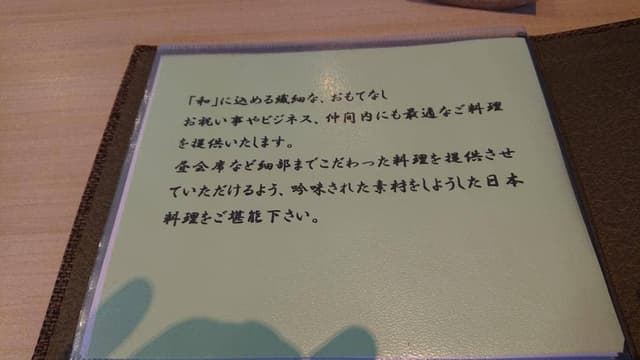 「和」に込める繊細な、おもてなし
お祝い事やビジネス、仲間内にも最適なご料理
を提供いたします。
昼会席など細部までこだわった料理を提供させ
ていただけるよう、吟味された素材をしようした日本
料理をご堪能下さい。